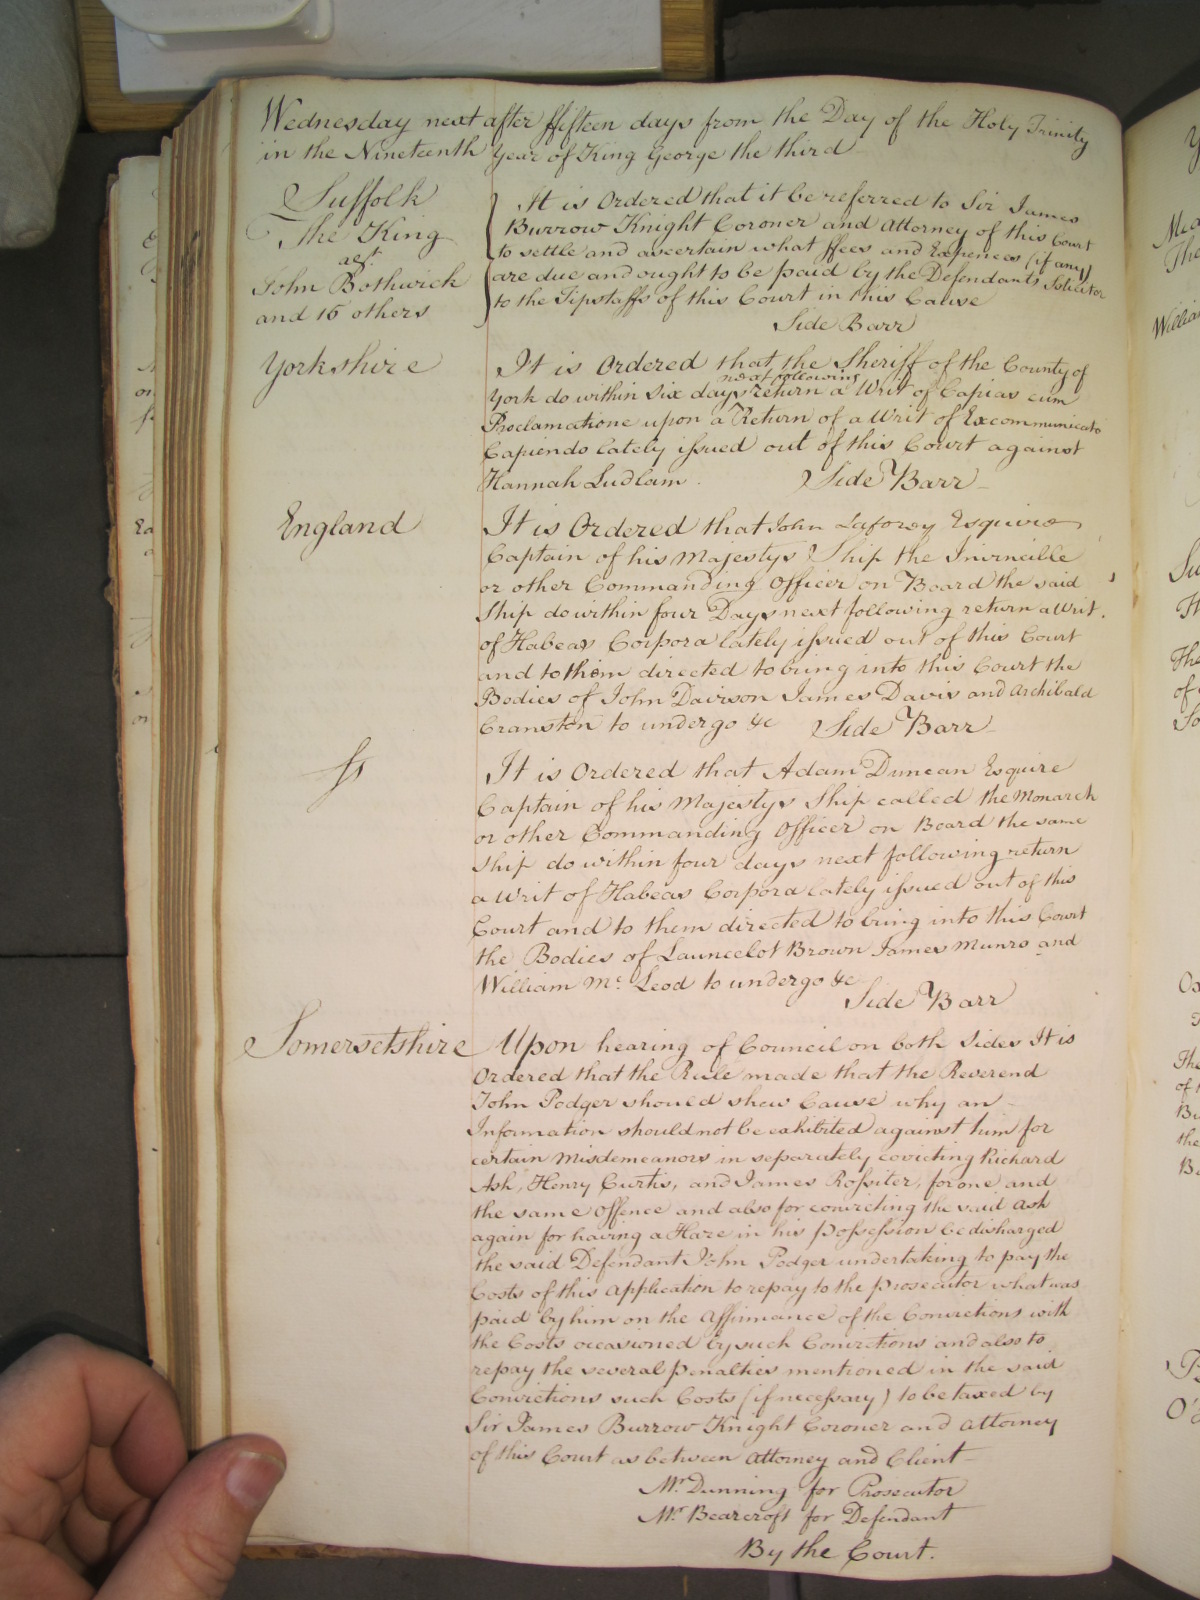 Wednesday next after ffifteen days from the Day of the Holy Trinity
in the Nineteenth Year of King George the third
Suffolk
The King
agt
John Bothwick
and 15 others
It is Ordered that it be referred to Sir James
Burrow Knight Coroner and Attorney of this Court
to settle and ascertain what ffees and Expences (if any)
are due and ought to be paid by the Defendants Solicitor
to the Tipstaffs of this Court in this Cause
Side Barr
Yorkshire
It is Ordered that the Sheriff of the County of
York do within six days next following return a Writ of Capias cum
Proclamatione upon a Return of a Writ of Excommunicato
Capiendo lately issued out of this Court against
Hannah Ludlam.
Side Barr
England
It is Ordered that John Laforey Esquire
Captain of his Majestys Ship the Invincible
or other Commanding Officer on Board the said
Ship do within four Days next following return a Writ
of Habeas Corpora lately issued out of this Court
and to them directed to bring into this Court the
Bodies of John Davison James Davis and Archibald
Cranston to undergo &c Side Barr
ss
It is Ordered that Adam Duncan Esquire
Captain of his Majestys Ship called the Monarch
or other Commanding Officer on Board the same
Ship do within four days next following return
a Writ of Habeas Corpora lately issued out of this
Court and to them directed to bring into this Court
the Bodies of Launcelot Brown James Munro and
William Mc Leod to undergo &c
Side Barr
Somersetshire
Upon hearing of Council on both Sides It is
Ordered that the Rule made that the Reverend
John Podger should shew Cause why an
Information should not be exhibited against him for
certain Misdemeanors in separately covicting Richard
Ash, Henry Curtis, and James Rossiter, for one and
the same Offence and also for convicting the said Ash
again for having a Hare in his possession be discharged
the said Defendant John Podger undertaking to pay the
Costs of this Application to repay to the prosecutor what was
paid by him on the Affirmance of the Convictions with
the Costs occasioned by such Convictions and also to
repay the several penalties mentioned in the said
Convictions such Costs (if necessary) to be taxed by
Sir James Burrow Knight Coroner and Attorney
of this Court as between Attorney and Client
Mr. Dunning for Prosecutor
Mr. Bearcroft for Defendant
By the Court.